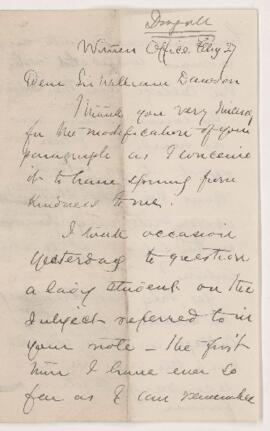 Dougall
Witness Office Feby 27
Dear Sir William Dawson
Thank you very sincerely
for the modification of your
paragraph as I conceive
it to have sprung from
kindness to me.
I took occasion
yesterday to question
a lady student on the
subject referred to in
your note – the first
time I have ever so
far as I can remember